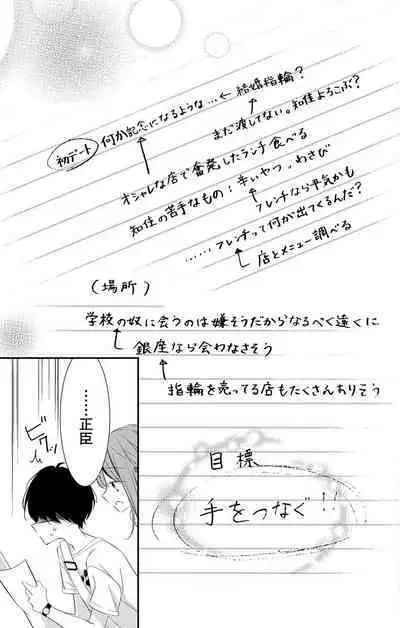 初デート 何か記念になるような…←結婚指輪?
まだ渡してない。知佳よろこぶ?
オシャレな店で奮発したランチ食べる
知佳の苦手なもの:辛いやつ、わさび
フレンチなら平気かも
……フレンチって何が出てくるんだ?
店とメニュー調べる
(場所)
学校の奴に会うのは嫌そうだからなるべく遠くに
銀座なら会わなさそう
指輪を売ってる店もたくさんありそう
目標
手をつなぐ!!
……正臣
ビクッ